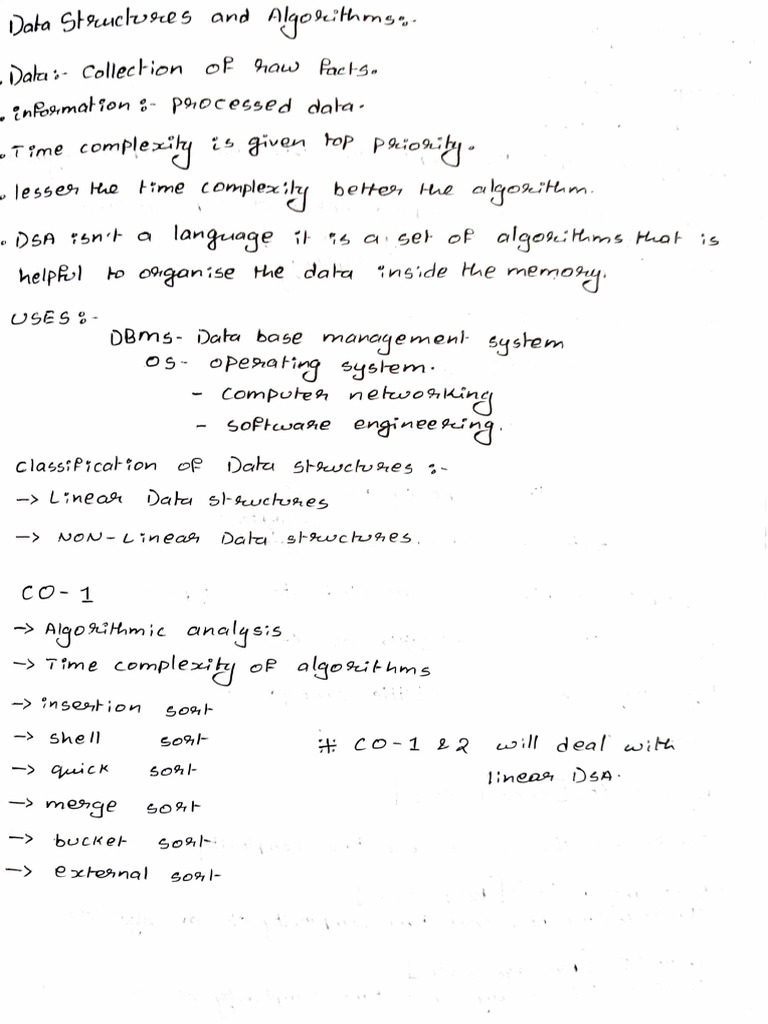 Data Structures and Algorithms:-
. Data:- Collection of raw facts.
. information:- processed data.
. Time complexity is given top priority.
. lesser the time complexity better the algorithm.
. DSA isn't a language it is a set of algorithms that is
helpful to organise the data inside the memory.
USES:-
DBMS- Data base management system
OS- operating system.
- computer networking
- software engineering.
classification of Data structures :-
-> Linear Data structures
-> NON-Linear Data structures.
CO-1
-> Algorithmic analysis
-> Time complexity of algorithms
-> insertion sort
-> shell sort
-> quick sort
-> merge sort
-> bucket sort
-> external sort
* CO-1 & 2 will deal with
linear DSA.